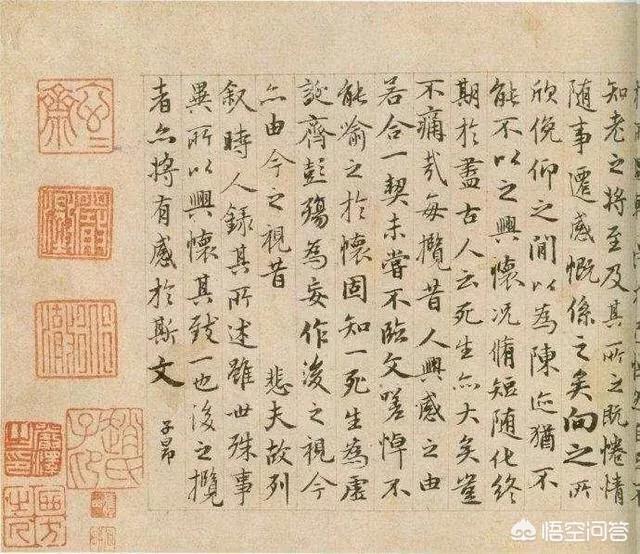 知老之将至及其所之既惓情
随事遷感慨係之矣向之所
欣俛仰之間以為陳迹猶不
能不以之興懷况脩短随化終
期於盡古人云死生亦大矣豈
不痛哉每攬昔人興感之由
若合一契未嘗不臨文嗟悼不
能喻之於懷固知一死生為虛
誕齊彭殤為妄作後之視今
亦由今之視昔 悲夫故列
叙時人録其所述雖世殊事
異所以興懷其致一也後之攬
者亦将有感於斯文
子昂
趙氏子昂
悟空问答